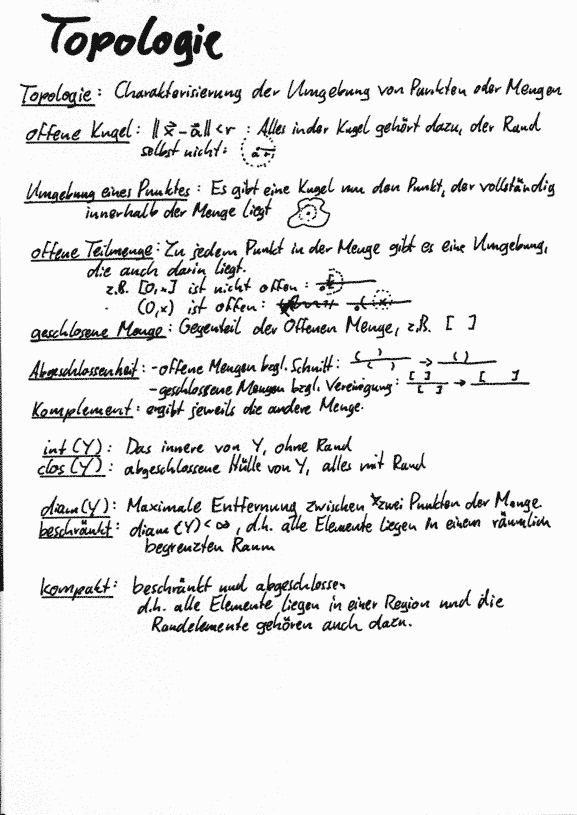 Topologie
Topologie: Charakterisierung der Umgebung von Punkten oder Mengen
offene Kugel: ‖x⃗ - a⃗‖ < r : Alles in der Kugel gehört dazu, der Rand
selbst nicht: a r
Umgebung eines Punktes: Es gibt eine Kugel um den Punkt, der vollständig
innerhalb der Menge liegt
offene Teilmenge: Zu jedem Punkt in der Menge gibt es eine Umgebung,
die auch darin liegt.
z.B. [0,x] ist nicht offen: [
(0,x) ist offen: ( x )
geschlossene Menge: Gegenteil der Offenen Menge, z.B. [ ]
Abgeschlossenheit: - offene Mengen bzgl. Schnitt: ( ) ( ) → ( )
- geschlossene Mengen bzgl. Vereinigung: [ ] [ ] → [ ]
Komplement: ergibt jeweils die andere Menge.
int(Y): Das innere von Y, ohne Rand
clos(Y): abgeschlossene Hülle von Y, alles mit Rand
diam(Y): Maximale Entfernung zwischen zwei Punkten der Menge
beschränkt: diam(Y)<∞, d.h. alle Elemente liegen in einem räumlich
begrenzten Raum
kompakt: beschränkt und abgeschlossen
d.h. alle Elemente liegen in einer Region und die
Randelemente gehören auch dazu.